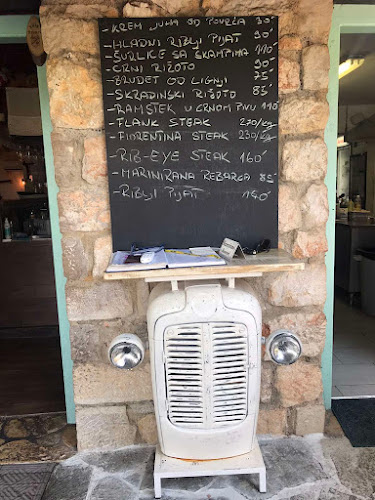 -KREM JUHA OD POVRĆA 30'
-HLADNI RIBLJI PIJAT 90'
-ŠURLICE SA ŠKAMPIMA 110'
-CRNI RIŽOTO 90'
-BRUDET OD LIGNJI 75'
-SKRADINSKI RIŽOTO 85'
-RAMSTEK U CRNOM PIVU 110'
-FLANK STEAK 270/KG
-FIORENTINA STEAK 230/KG
-RIB-EYE STEAK 160'
-MARINIRANA REBARCA 85'
-RIBLJI PIJAT 150'